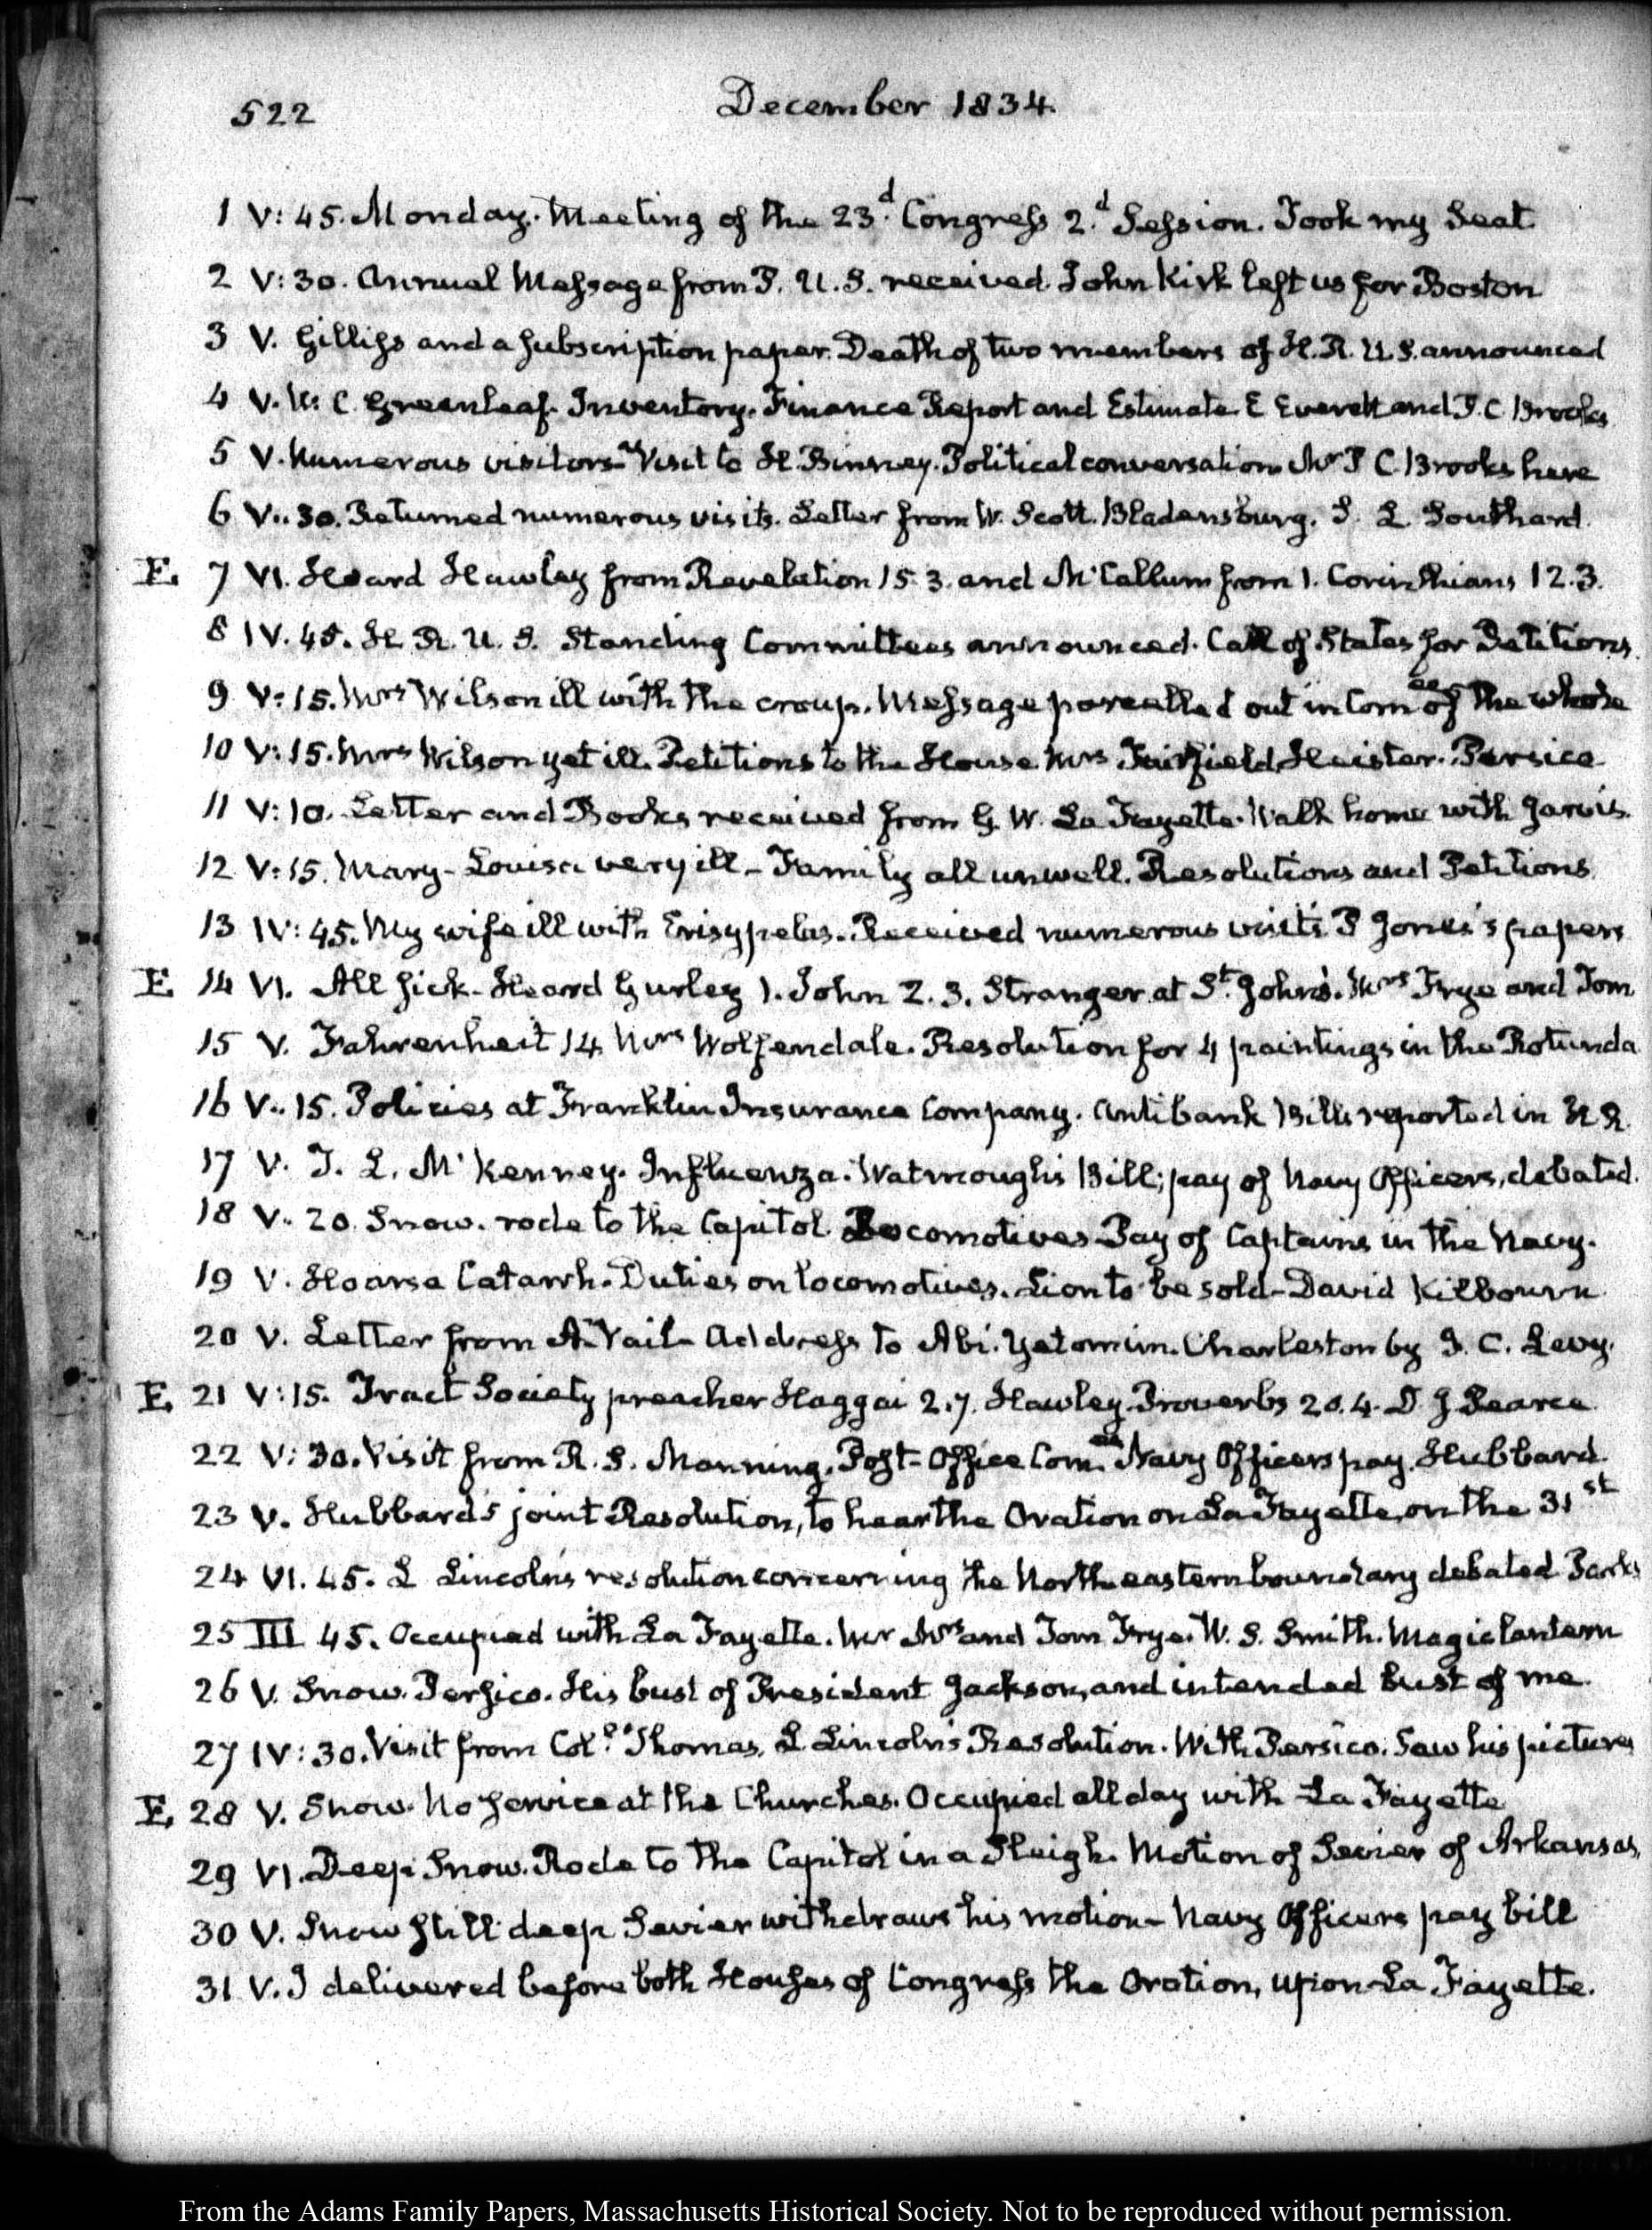 522
December 1834.
1 V: 45. Monday. Meeting of the 23.d Congress 2.d Session. Took my Seat
2 V: 30. Annual Message from P. U. S. received. John Kirk left us for Boston
3 V. Gilliss and a subscription paper. Death of two members of H. R. U. S. announced
4 V. W. C. Greenleaf. Inventory. Finance Report and Estimate. E Everett and P. C Brooks
5 V. Numerous visitors. Visit to H. Binney. Political conversation. Mr P C. Brooks here
6 V.. 30. Returned numerous visits. Letter from W. Scott. Bladensburg. S. L. Southard.
E. 7 VI. Heard Hawley from Revelation 15. 3. and McCallum from 1. Corinthians 12.3.
8 IV. 45. H R. U. S. Standing Committees announced. Call of States for Petitions.
9 V: 15. Mrs Wilson ill with the croup. Message parcelled out in Comee of the whole
10 V: 15. Mrs Wilson yet ill. Petitions to the House Mrs Fairfield. Heister. Persico
11 V: 10. Letter and Books received from G. W. La Fayette. Walk home with Jarvis.
12 V: 15. Mary-Louisa very ill - Family all unwell. Resolutions and Petitions.
13 IV: 45. My wife ill with Erisypelas. Received numerous visits. P Jones's papers
E 14 VI. All sick. Heard Gurley 1. John 2. 3. Stranger at St. John's. Mrs Frye and Tom
15 V. Fahrenheit 14. Mrs Wolfendale. Resolution for 4 paintings in the Rotunda
16 V.. 15. Policies at Franklin Insurance Company. Antibank Bills reported in H R.
17 V. T. L. McKenney. Influenza. Watmough's Bill; pay of Navy Officers, debated.
18 V.. 20. Snow. rode to the Capitol. Locomotives. Pay of Captains in the Navy.
19 V. Hoarse Catarrh. Duties on locomotives. Lion to be sold - David Kilbourn
20 V. Letter from A. Vail. Address to Abi. Yetomim. Charleston by J. C. Levy.
E. 21 V: 15. Tract Society preacher Haggai 2.7. Hawley. Proverbs 20. 4. D J Pearce
22 V: 30. Visit from R. S. Manning. Post-Office Comee Navy Officers pay. Hubbard.
23 V. Hubbard's joint Resolution, to hear the Oration on La Fayette, on the 31st
24 VI. 45. L Lincoln's resolution concerning the Northeastern boundary debated Parks
25 III 45. Occupied with La Fayette. Mr Mrs and Tom Frye. W. S. Smith. Magic lantern
26 V. Snow. Persico. His bust of President Jackson, and intended bust of me.
27 IV: 30. Visit from Coll. Thomas. L Lincoln's Resolution. With Persico. Saw his pictures
E. 28 V. Snow. No service at the Churches. Occupied all day with La Fayette
29 VI. Deep Snow. Rode to the Capitol in a Sleigh. Motion of Sevier of Arkansas,
30 V. Snow still deep Sevier withdraws his motion - Navy Officers pay bill
31 V. I delivered before both Houses of Congress the Oration, upon La Fayette.
From the Adams Family Papers, Massachusetts Historical Society. Not to be reproduced without permission.